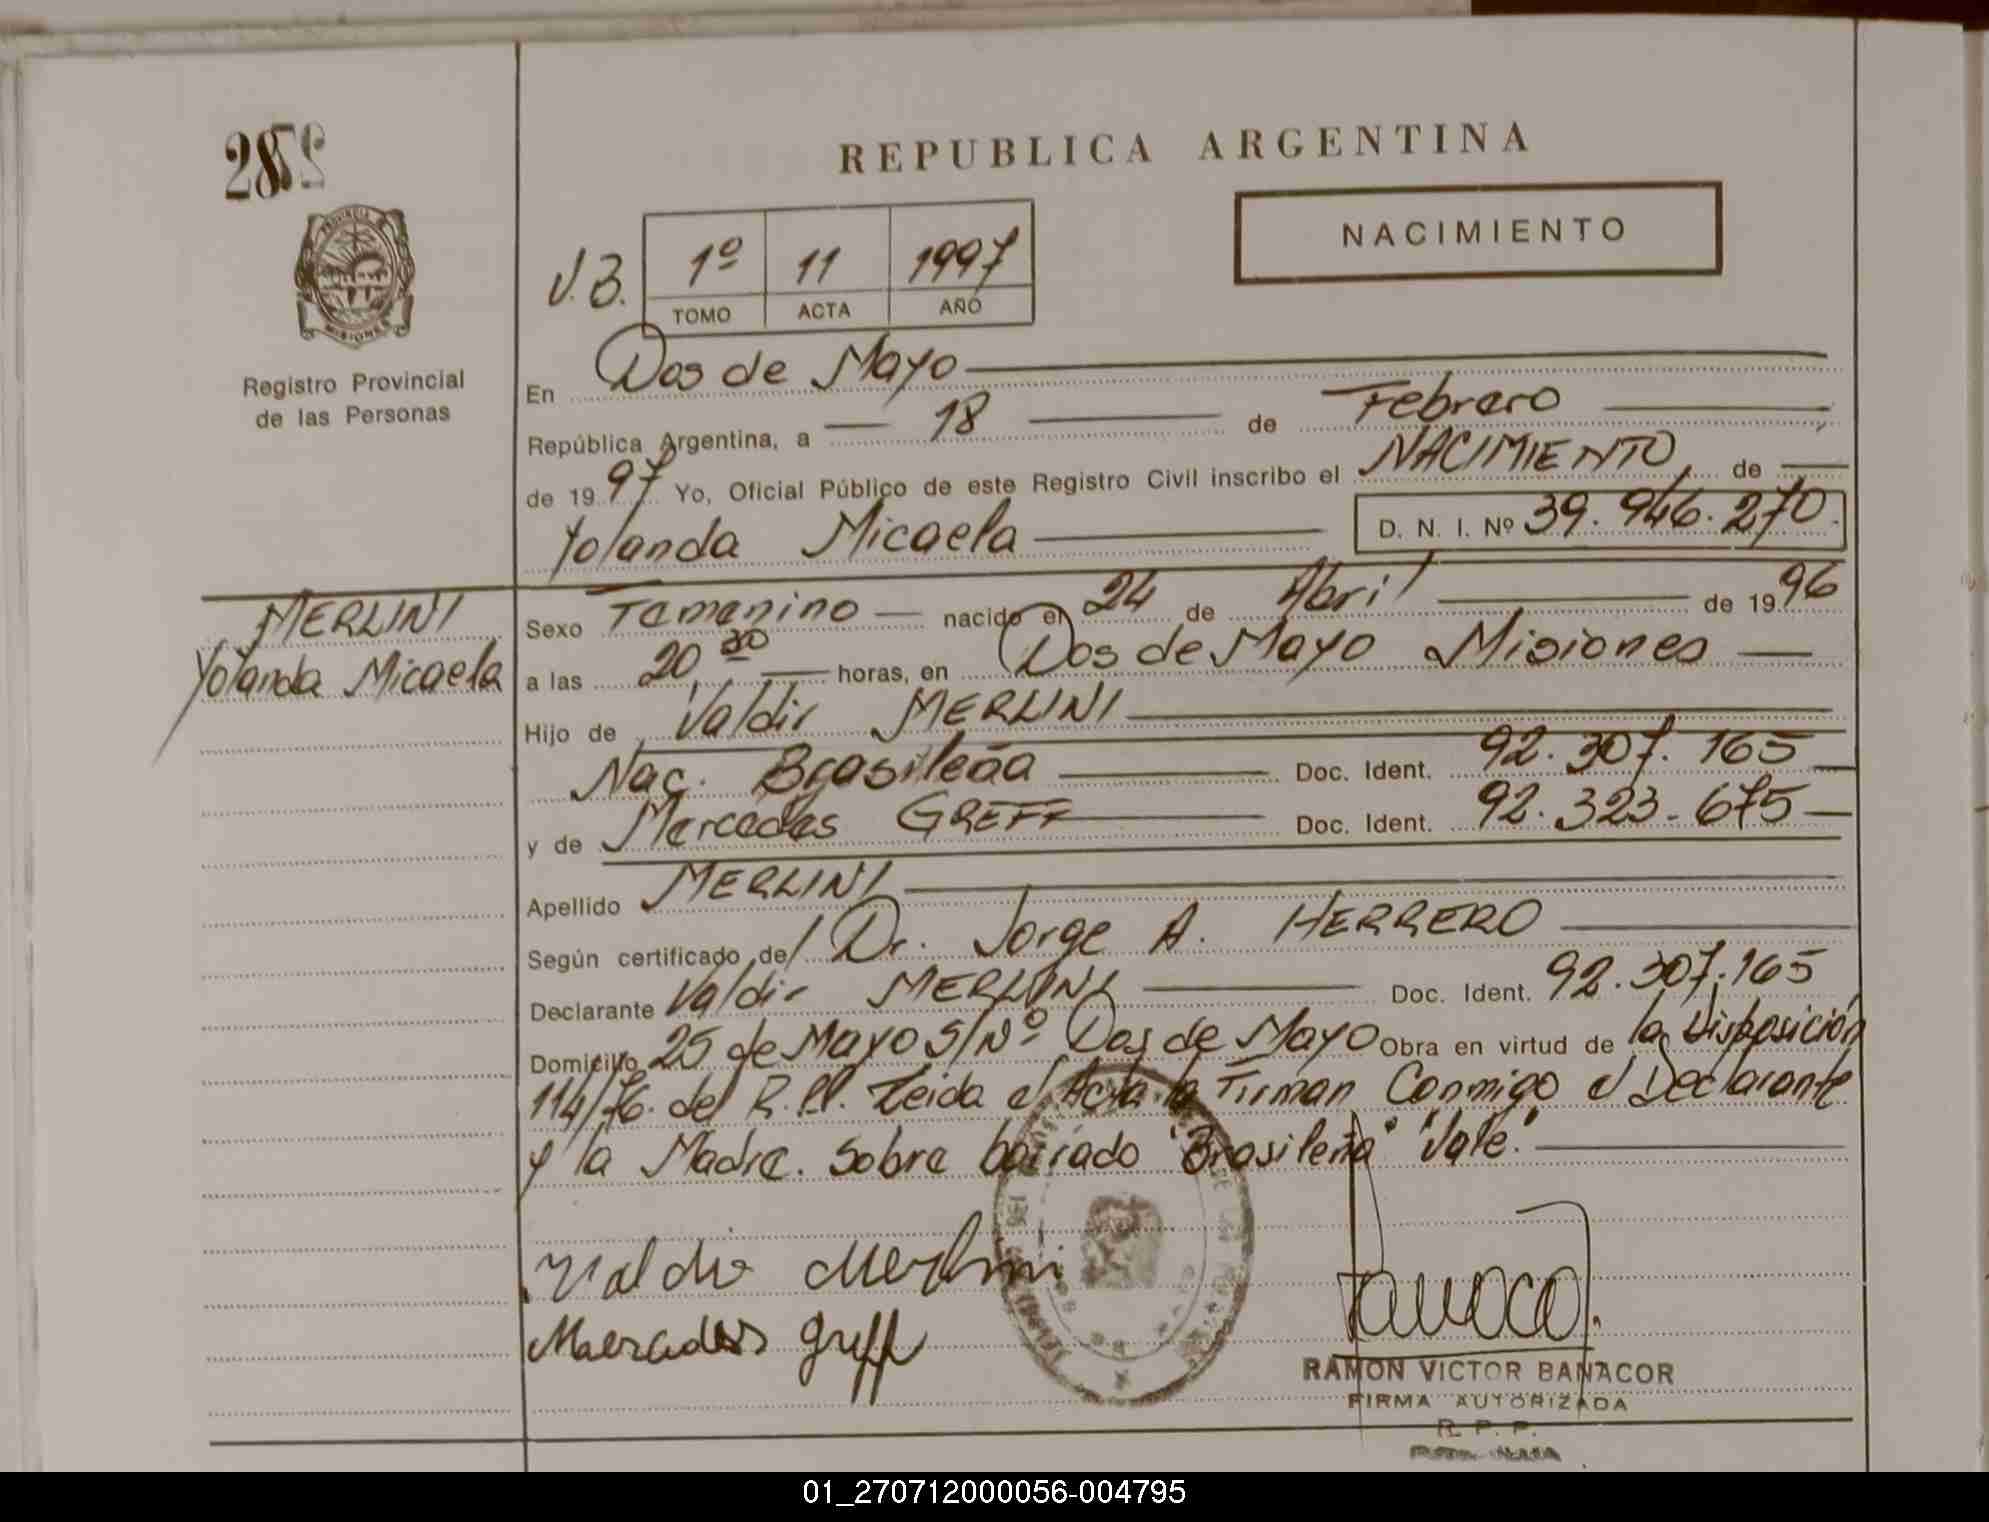 REPUBLICA ARGENTINA
NACIMIENTO
PROVINCIA
MISIONES
Registro Provincial
de las Personas
J.B.
1º 11 1997
TOMO ACTA AÑO
En Dos de Mayo
República Argentina, a 18 de Febrero
de 1997 Yo, Oficial Público de este Registro Civil inscribo el NACIMIENTO, de
Yolanda Micaela D. N. I. Nº 39.946.270.
MERLINI
Yolanda Micaela
Sexo Femenino nacido el 24 de Abril de 1996
a las 20,30 horas, en Dos de Mayo Misiones
Hijo de Valdir MERLINI
Nac. Brasileña Doc. Ident. 92.307.165
y de Mercedes GREFF Doc. Ident. 92.323.675
Apellido MERLINI
Según certificado del Dr. Jorge A. HERRERO
Declarante Valdir MERLINI Doc. Ident. 92.307.165
Domicilio 25 de Mayo S/Nº Dos de Mayo Obra en virtud de la Disposición
114/76. del R.P.P. Leida el Acta la Firman Conmigo el Declarante
y la Madre. Sobre borrado "Brasileña" "Vale."
Valdir Merlini
Mercedes Greff
RAMON VICTOR BANACOR
FIRMA AUTORIZADA
R. P. P.
01_270712000056-004795